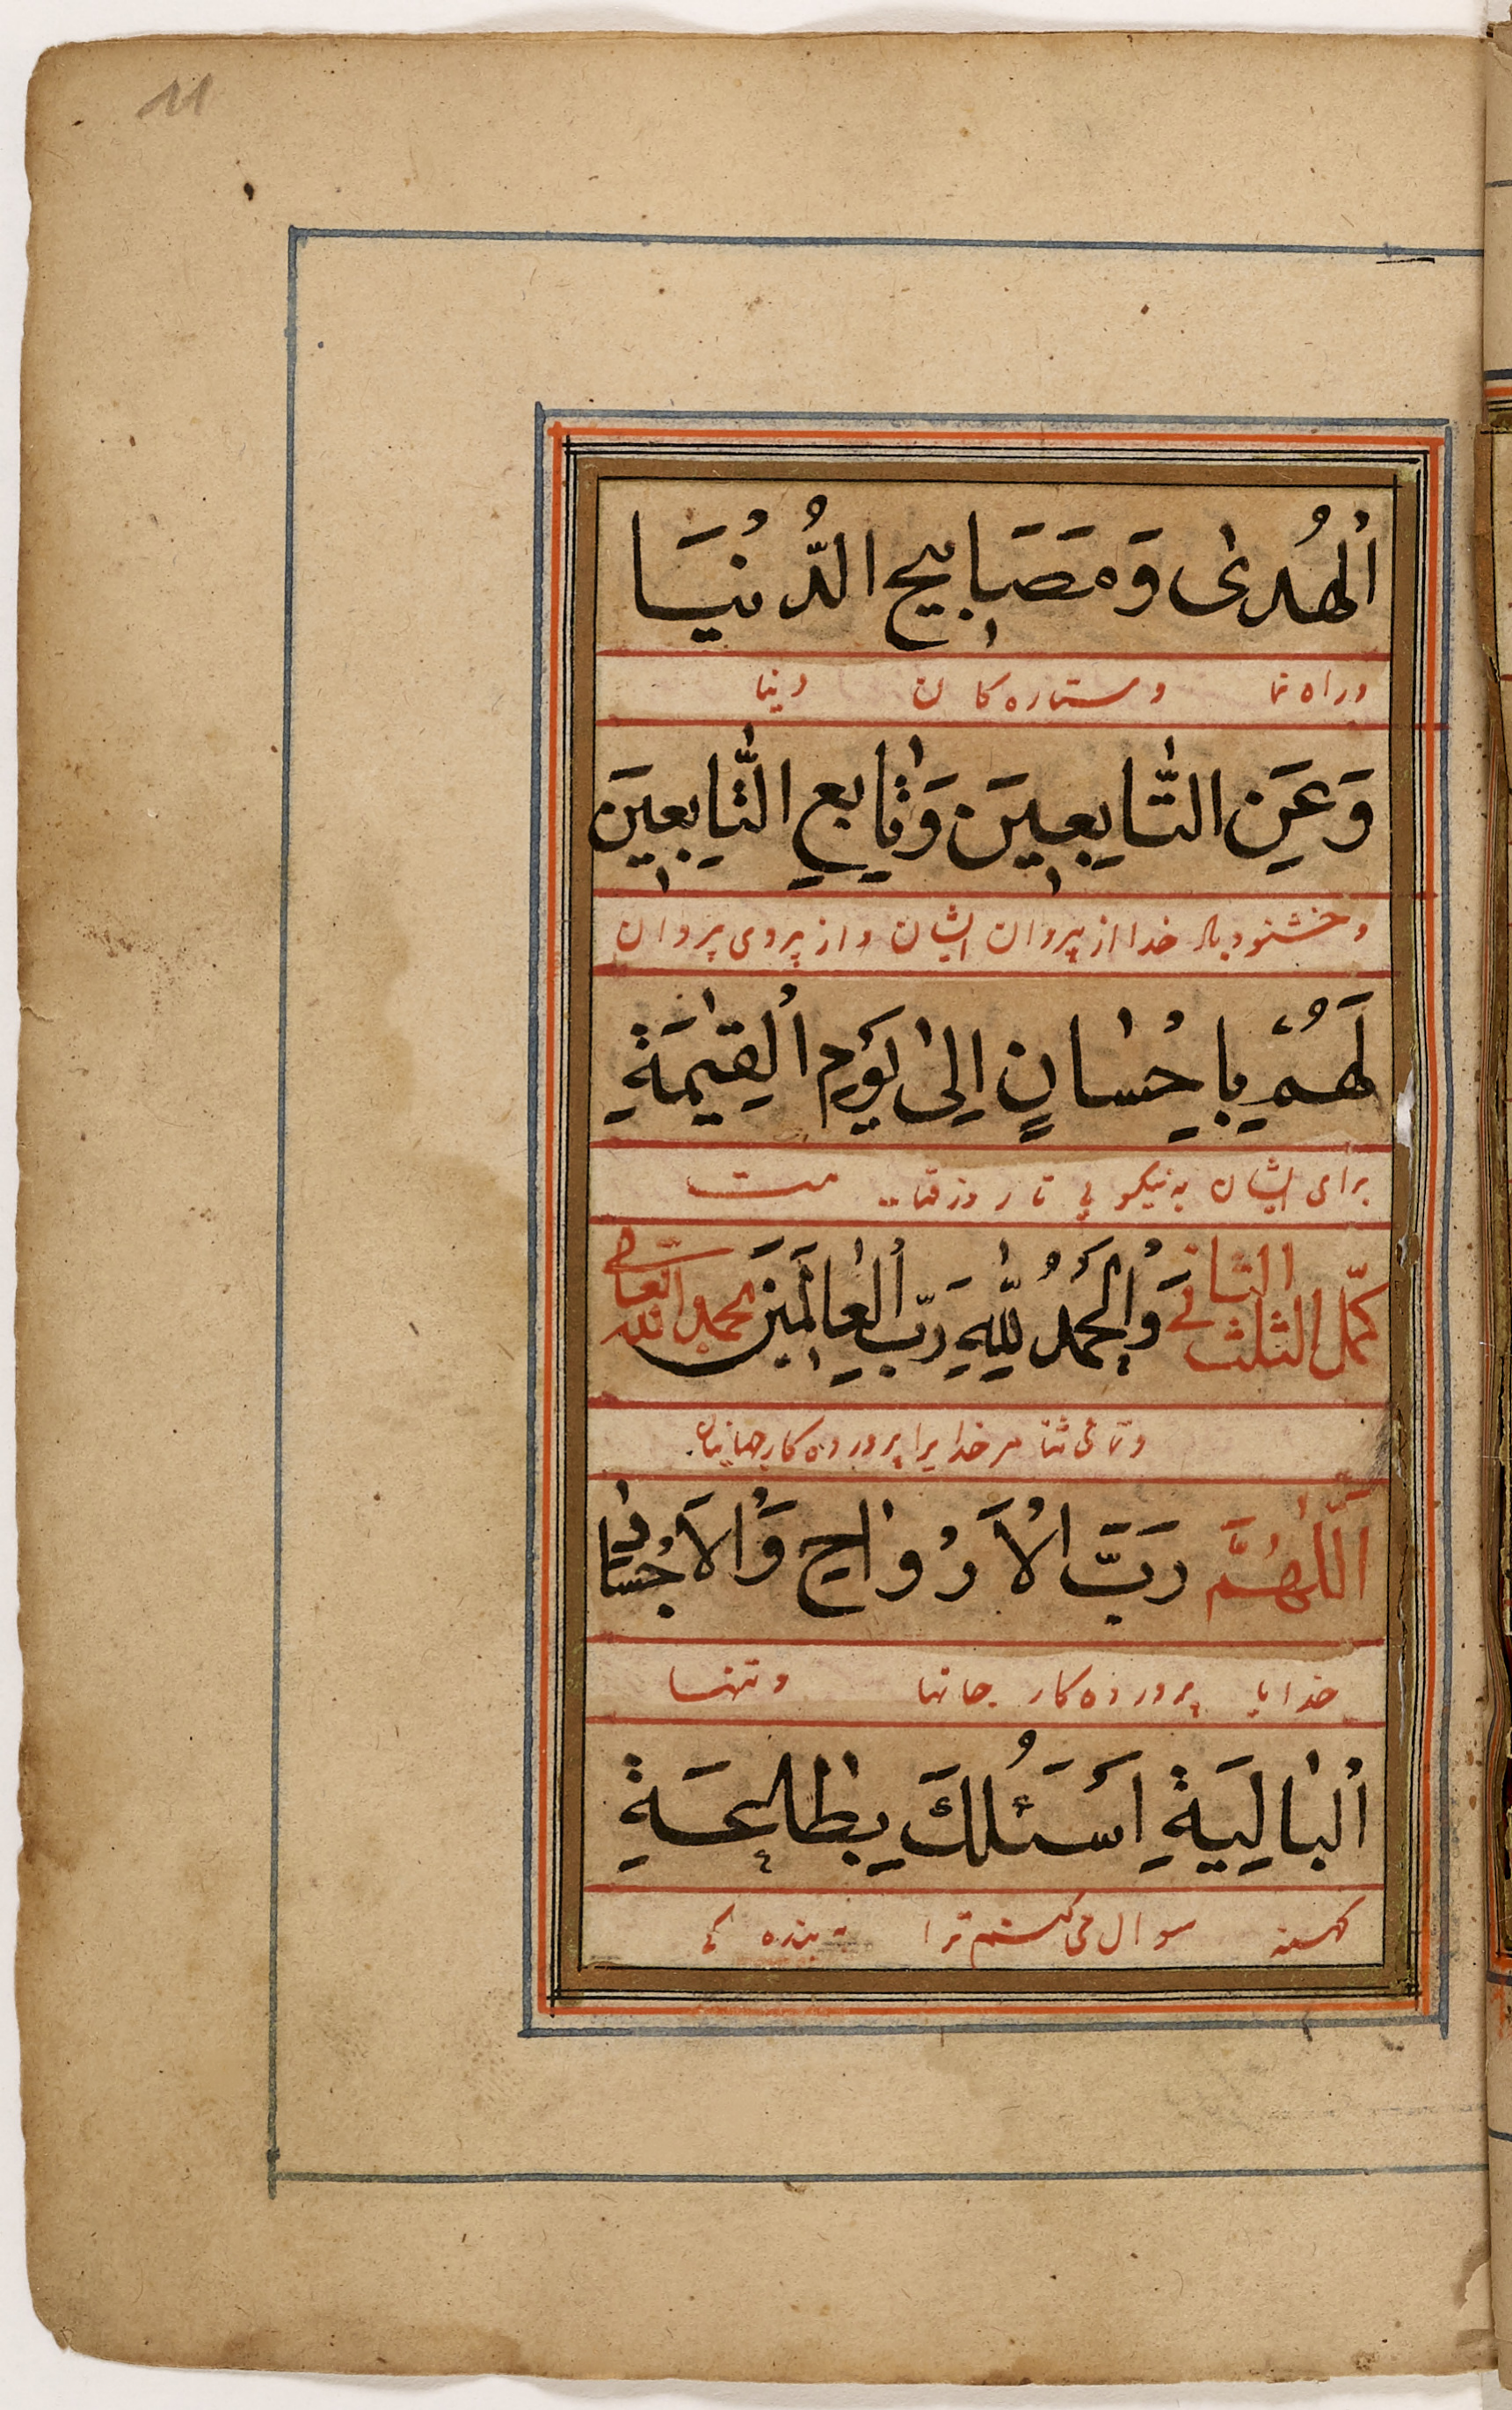 اَلْهُدىٰ وَمَصَابِيحِ الدُّنْيَا
وراه نما وستاره كان دنيا
وَعَنِ التَّابِعِينَ وَتَابِعِ التَّابِعِينَ
وخشنود باد خدا از پيروان ايشان و از پيروى پيروان
لَهُمْ بِاِحْسَانٍ اِلىٰ يَوْمِ الْقِيٰمَةِ
براى ايشان به نيكويى تا روز قيامت
كمّل الثلث الثانى وَالْحَمْدُ لِلّٰهِ رَبِّ الْعٰالَمِينَ بحمد الله تعالى
وتمامى ثنا مر خدايرا پرورده كار جهانيان
اَللّٰهُمَّ رَبَّ الْاَرْوَاحِ وَالْاَجْسَادِ
خدايا پرورده كار جانها وتنها
اَلْبَالِيَةِ اَسْئَلُكَ بِطَاعَةِ
كهنه سوال مى كنم ترا به بنده كى